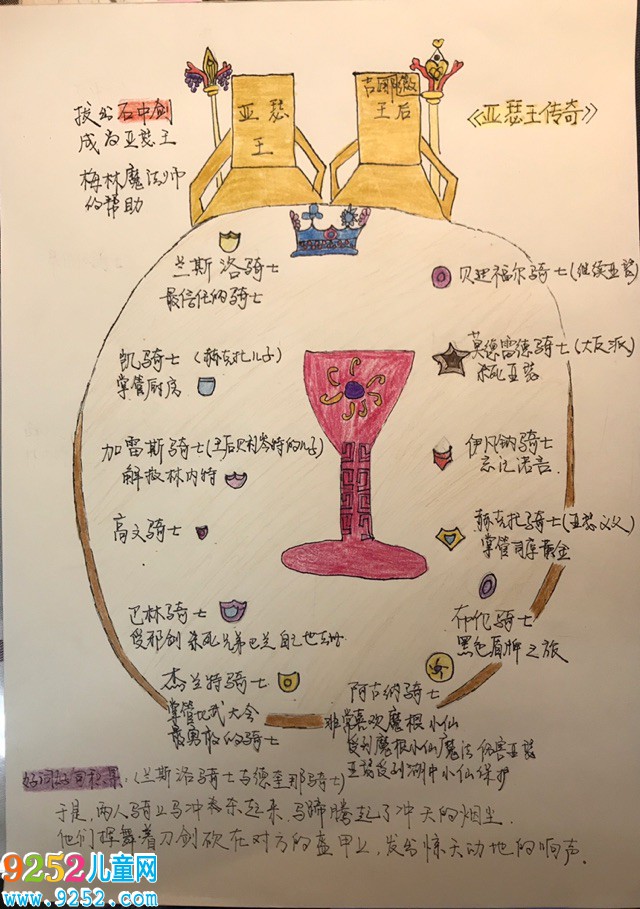 拔出石中剑
成为亚瑟王
梅林魔法师
的帮助
亚瑟
王
王后
《亚瑟王传奇》
兰斯洛骑士
最信任的骑士
凯骑士（赫克托儿子）
掌管厨房
加雷斯骑士（王后贝利岑特的儿子）
解救林内特
高文骑士
巴林骑士
杰兰特骑士
掌管比武大会
最勇敢的骑士
贝迪福尔骑士（继续亚瑟）
莫德雷德骑士（大反派）
杀死亚瑟
伊凡纳骑士
忘记诺言
赫克托骑士（亚瑟义父）
掌管司库
布伦骑士
黑色盾牌之旅
阿古纳骑士
非常喜欢魔根小仙
受到魔根小仙魔法伤害亚瑟
亚瑟受到湖中小仙保护
好词好句积累：（兰斯洛骑士与德奎那骑士）
于是，两人骑上马冲杀东起来，马蹄腾起了冲天的烟尘.
他们挥舞着刀剑砍在对方的盔甲上，发出惊天动地的响声.
9252儿童网
www.9252.com